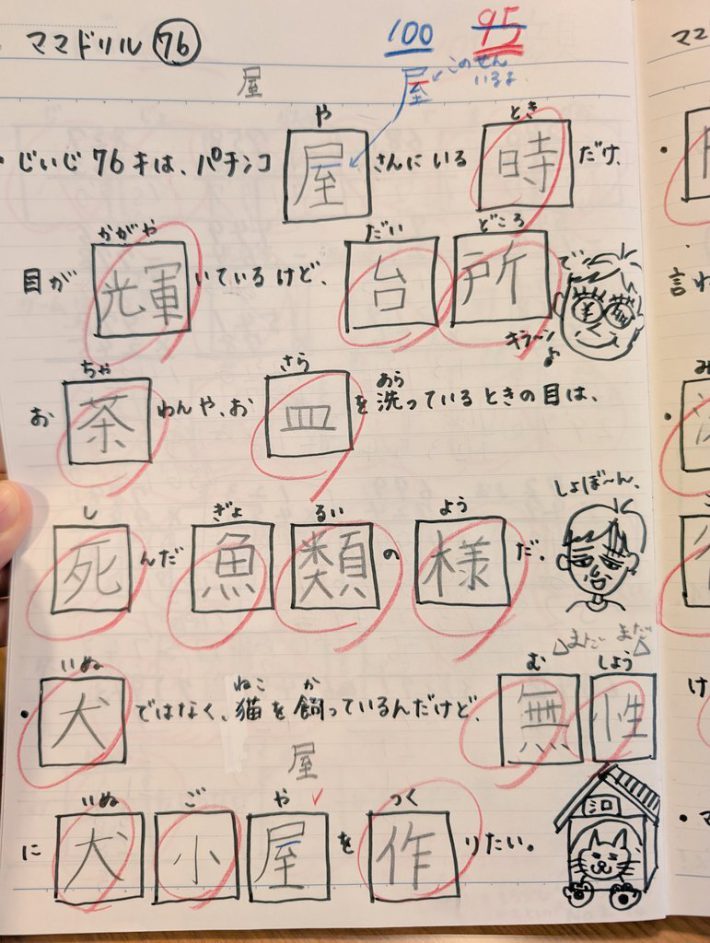 ママドリル 76
100
95
屋
屋
このせん
いるよ
や
とき
・じいじ76才は、パチンコ屋さんにいる時だけ、
かがや
だい
どころ
目が輝いているけど、台所で、
キラーン♪
ちゃ
さら
あら
お茶わんや、お皿を洗っているときの目は、
しょぼ〜ん、
し
ぎょ
るい
よう
死んだ魚類の様だ。
まだ まだ
いぬ
ねこ
か
む
しょう
・犬ではなく、猫を飼っているんだけど、無性
屋
いぬ
ご
や
つく
に犬小屋を作りたい。
ママ
言わ
け